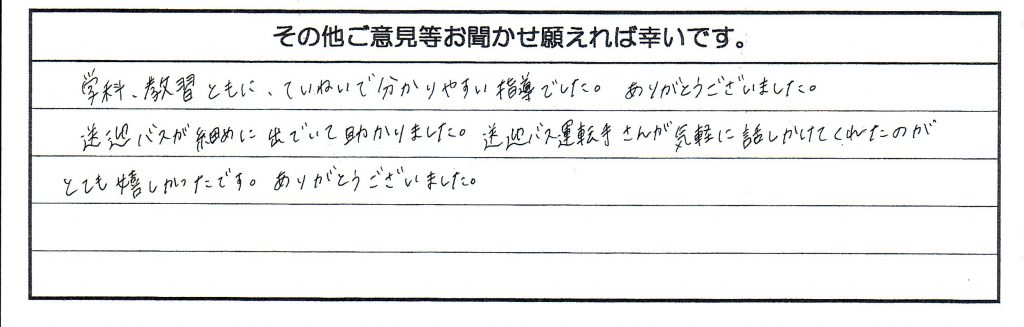 その他ご意見等お聞かせ願えれば幸いです。
学科、教習ともに、ていねいで分かりやすい指導でした。 ありがとうございました。
送迎バスが細めに出ていて助かりました。 送迎バス運転手さんが気軽に話しかけてくれたのが
とても嬉しかったです。 ありがとうございました。